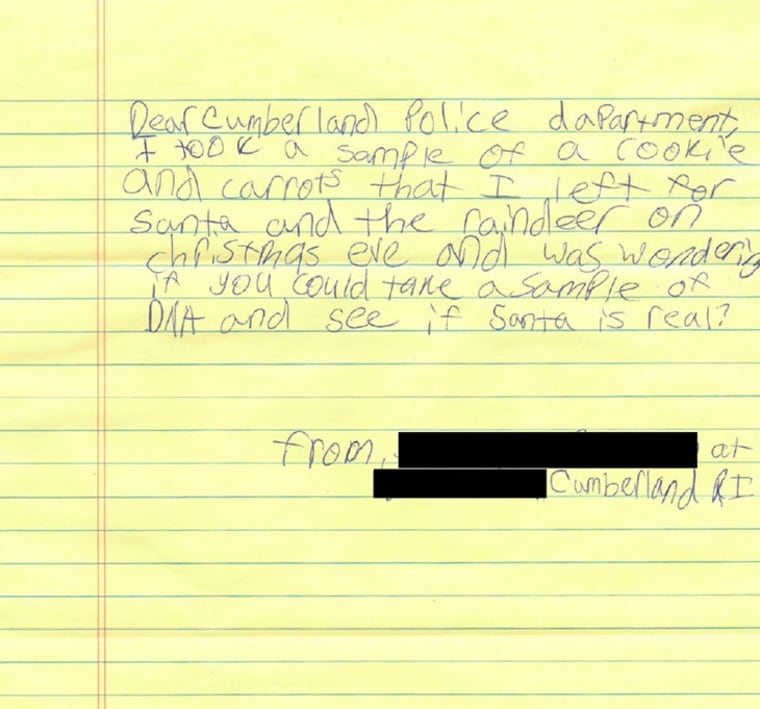 Dear Cumberland Police dapartment,
I took a sample of a cookie
and carrots that I left for
Santa and the raindeer on
christmas eve and was wondering
if you could take a sample of
DNA and see if Santa is real?
from,
at
Cumberland RI